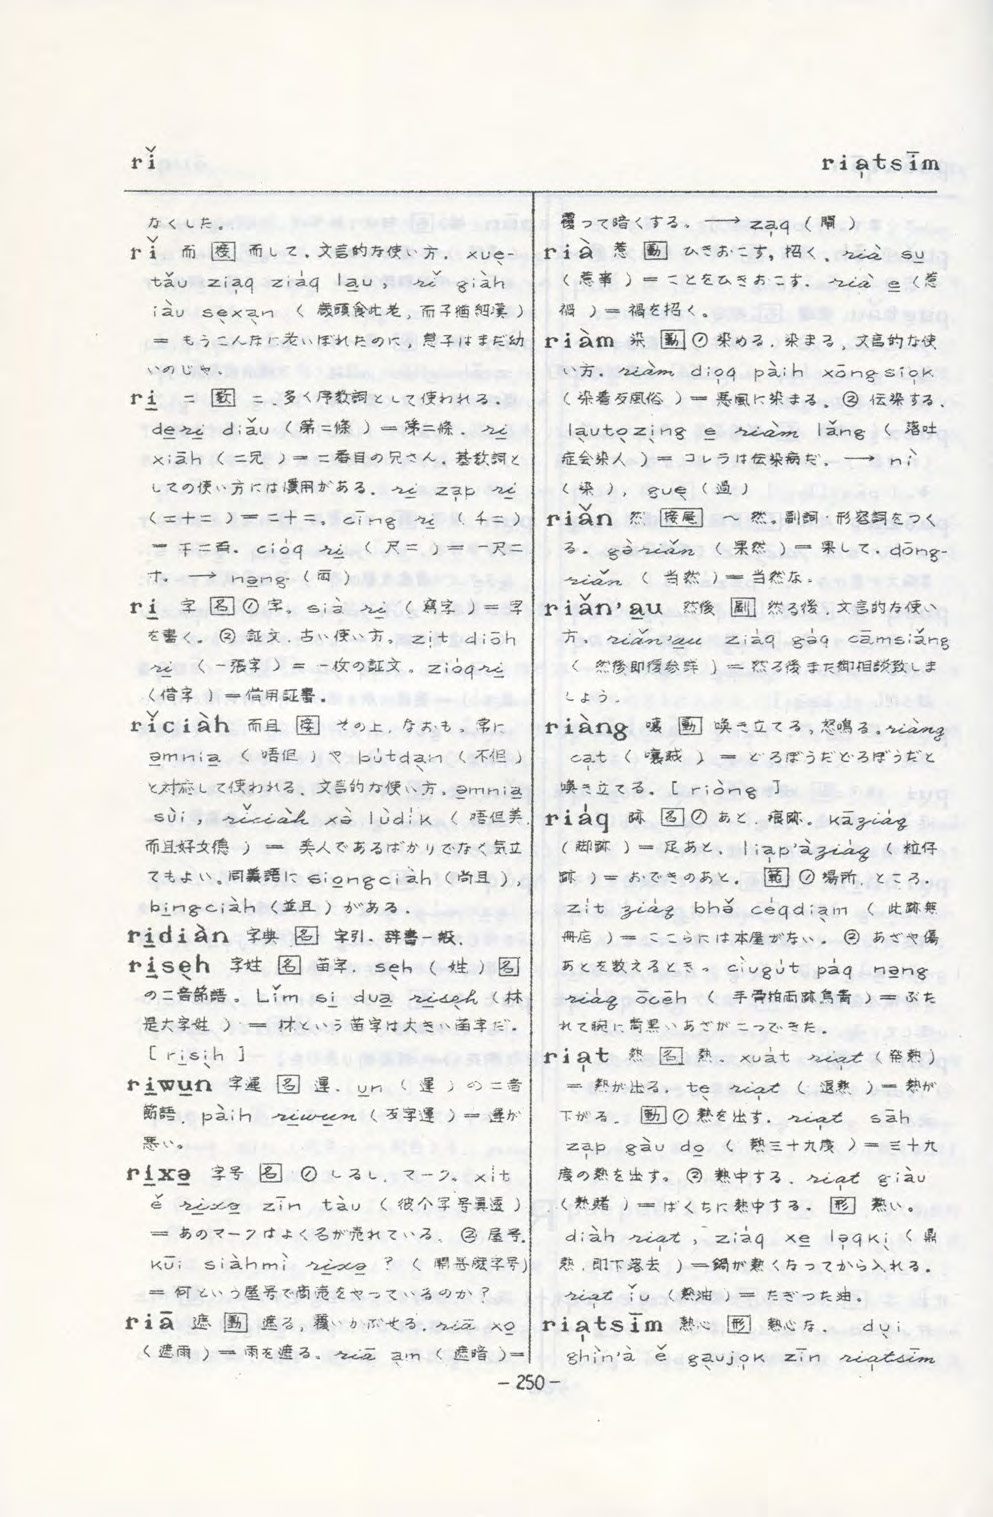 rǐ
riạtsīm
なくした。
rǐ 而 [接] 而して。文言的な使い方。xuẹ-
tǎu ziạq ziáq lạu, rǐ giàh
iàu sẹxạn ( 歳頭食此老, 而子猶細漢 )
= もうこんなに老いぼれたのに, 息子はまだ幼
いのじゃ。
ri̱ 二 [数] 二。多く序数詞として使われる。
de̱ri̱ diǎu ( 第二條 ) = 第二條。ri̱
xiāh ( 二兄 ) = 二番目の兄さん。基数詞と
しての使い方には慣用がある。ri̱ zạp ri̱
( 二十二 ) = 二十二。cīng ri̱ ( 千二 )
= 千二百。cióq ri̱ ( 尺二 ) = 一尺二
寸。→ nạ̄ng ( 両 )
ri̱ 字 [名] ① 字。sià ri̱ ( 寫字 ) = 字
を書く。② 証文。古い使い方。zịt diōh
ri̱ ( 一張字 ) = 一枚の証文。zióq-ri̱
( 借字 ) = 借用証書。
rǐciàh 而且 [接] その上, なおも。常に
ə̱mnia̱ ( 唔但 ) や bútdạn ( 不但 )
と対応して使われる。文言的な使い方。ə̱mnia̱
sùi, rǐciàh xə̀ lùdík ( 唔但美,
而且好女德 ) = 美人であるばかりでなく気立
てもよい。同義語に sio̱ngciàh ( 尚且 ),
bi̱ngciàh ( 並且 ) がある。
ri̱diàn 字典 [名] 字引。辞書一般。
ri̱sẹh 字姓 [名] 苗字。sẹh ( 姓 ) [名]
の二音節語。Lǐm si̱ dua̱ ri̱sẹh ( 林
是大字姓 ) = 林という苗字は大きい苗字だ。
[ ri̱sịh ]
ri̱wu̱n 字運 [名] 運。u̱n ( 運 ) の二音
節語。pàih ri̱wu̱n ( 歹字運 ) = 運が
悪い。
ri̱xə̱ 字号 [名] ① しるし, マーク。xit
ě ri̱xə̱ zīn tàu ( 彼个字号眞透 )
= あのマークはよく名が売れている。② 屋号。
kūi siàhmì ri̱xə̱ ? ( 開甚麼字号)
= 何という屋号で商売をやっているのか?
riā 遮 [動] 遮る, 覆いかぶせる。riā xo̱
( 遮雨 ) = 雨を遮る。riā ạm ( 遮暗 ) =
覆って暗くする。→ zạq ( 閘 )
rià 惹 [動] ひきおこす, 招く。rià su̱
( 惹事 ) = ことをひきおこす。rià e̱ ( 惹
禍 ) = 禍を招く。
riàm 染 [動] ① 染める, 染まる。文言的な使
い方。riàm diọq pàih xōngsiọk
( 染着歹風俗 ) = 悪風に染まる。② 伝染する。
la̱utọzịng e̱ riàm lǎng ( 落吐
症会染人 ) = コレラは伝染病だ。→ nì
( 染 ), guẹ ( 過 )
riǎn 然 [接尾] ～然。副詞・形容詞をつく
る。gə̀riǎn ( 果然 ) = 果して。dōng-
riǎn ( 当然 ) = 当然な。
riǎn'a̱u 然後 [副] 然る後。文言的な使い
方。riǎn'a̱u ziáq gáq cāmsiǎng
( 然後即復參詳 ) = 然る後また御相談致しま
しょう。
riàng 嚷 [動] 喚き立てる, 怒鳴る。riàng
cạt ( 嚷賊 ) = どろぼうだどろぼうだと
喚き立てる。[ riòng ]
riáq 跡 [名] ① あと, 痕跡。kāziáq
( 脚跡 ) = 足あと。liạp'àziáq ( 粒仔
跡 ) = おできのあと。[範] ① 場所, ところ。
zít ziáq bhǒ céqdiạm ( 此跡無
冊店 ) = ここらには本屋がない。② あざや傷
あとを数えるとき。cìugút páq nạng
riáq ōcēh ( 手骨拍両跡烏青 ) = ぶた
れて腕に青黒いあざが二つできた。
riạt 熱 [名] 熱。xuát riạt ( 発熱 )
= 熱が出る。tẹ riạt ( 退熱 ) = 熱が
下がる。[動] ① 熱を出す。riạt sāh
zạp gàu do̱ ( 熱三十九度 ) = 三十九
度の熱を出す。② 熱中する。riạt giàu
( 熱賭 ) = ばくちに熱中する。[形] 熱い。
diàh riạt, ziáq xe̱ lọqkị ( 鼎
熱, 即下落去 ) = 鍋が熱くなってから入れる。
riạt ǐu ( 熱油 ) = たぎった油。
riạtsīm 熱心 [形] 熱心な。dụi
ghìn'à ě gạujọk zīn riạtsīm
- 250 -